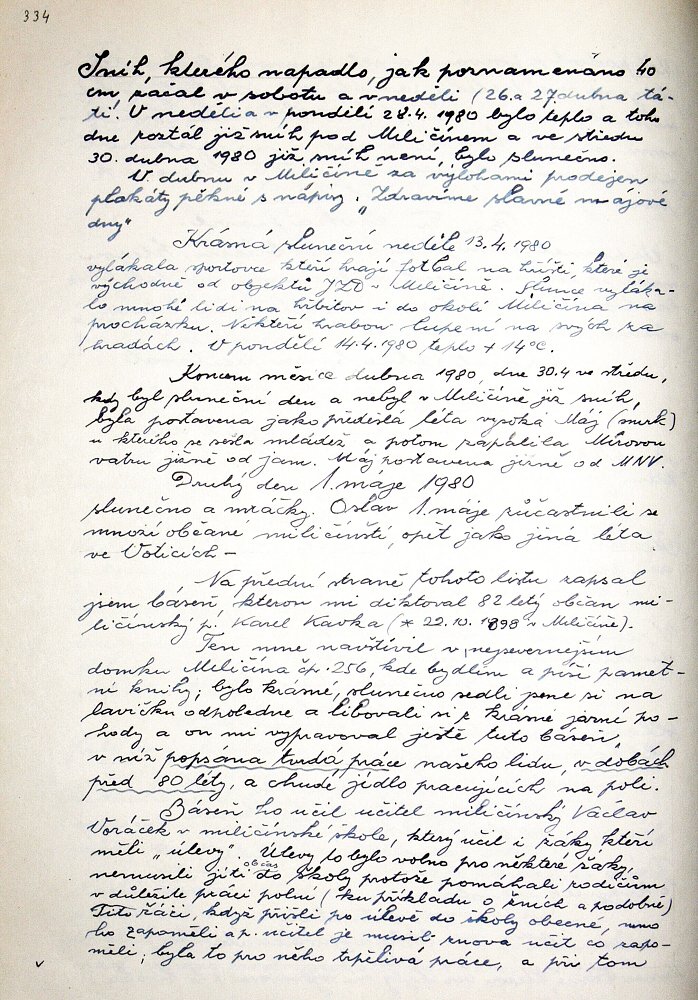 334
Sníh, kterého napadlo, jak poznamenáno 40
cm, začal v sobotu a v neděli (26. a 27. dubna tá-
ti. V neděli a v pondělí 28.4. 1980 bylo teplo a toho
dne roztál již sníh pod Miličínem a ve středu
30. dubna 1980 již sníh není, bylo slunečno.
V dubnu v Miličíně za výlohami prodejen
plakáty pěkné s nápisy: "Zdravíme slavné májové
dny"
Krásná sluneční neděle 13.4. 1980
vylákala sportovce kteří hrají fotbal na hřišti, které je
východně od objektů JZD v Miličíně. Slunce vyláka-
lo mnohé lidi na hřbitov i do okolí Miličína na
procházku. Někteří hrabou lupení na svých za
hradách. V pondělí 14.4.1980 teplo + 14°C.
Koncem měsíce dubna 1980, dne 30.4 ve středu,
kdy byl sluneční den a nebyl v Miličíně již sníh,
byla postavena jako předešlá léta vysoká Máj (smrk)
u kterého se sešla mládež a potom zapálila Mírovou
vatru jižně od jam. Máj postavena jižně od MNV.
Druhý den 1. máje 1980
slunečno a mráčky. Oslav 1. máje zúčastnili se
mnozí občané miličínští, opět jako jiná léta
ve Voticích –
Na přední straně tohoto listu zapsal
jsem báseň, kterou mi diktoval 82 letý občan mi-
ličínský p. Karel Kavka (* 22.10. 1898 v Miličíně).
Ten mne navštívil v nejsevernějším
domku Miličína čp. 256, kde bydlím a píši pamet-
ní knihy; bylo krásné, slunečno sedli jsme si na
lavičku odpoledne a libovali si z krásné jarní po-
hody a on mi vypravoval ještě tuto báseň,
v níž popsána tvrdá práce našeho lidu, v dobách
před 80 léty, a chudé jídlo pracujících na poli.
Báseň ho učil učitel miličínský Václav
Voráček v miličínské škole, který učil i žáky kteří
měli "úlevy". Úlevy to bylo volno pro některé žáky,
nemusili jíti občas do školy protože pomáhali rodičům
v důležité práci polní (ku příkladu o žních a podobně)
Tito žáci, když přišli po úlevě do školy obecné, mno
ho zapoměli a p. učitel je musil znova učit co zapo-
měli; byla to pro něho trpělivá práce, a při tom
v